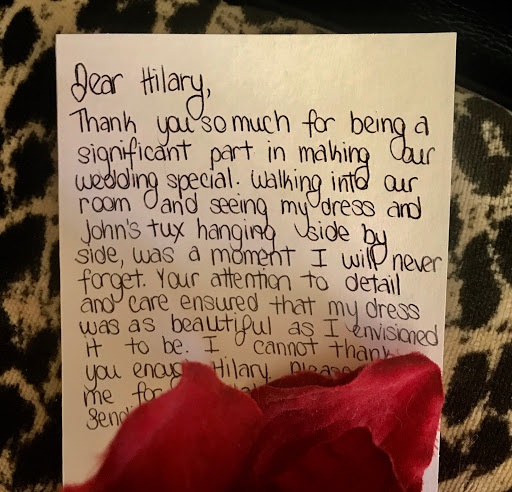 Dear Hilary,
Thank you so much for being a
significant part in making our
wedding special. Walking into our
room and seeing my dress and
John's tux hanging side by
side, was a moment I will never
forget. Your attention to detail
and care ensured that my dress
was as beautiful as I envisioned
it to be. I cannot thank
you enough Hilary, please
me for